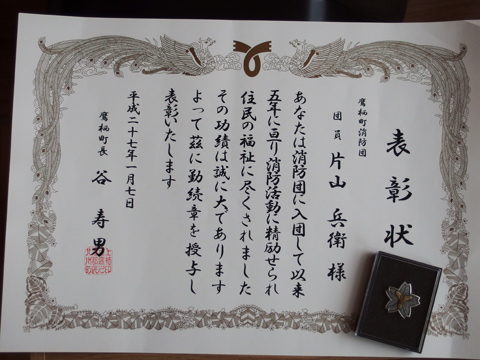 表彰状
鷹栖町消防団
団員 片山 兵衛 様
あなたは消防団に入団して以来
五年に亘り消防活動に精励せられ
住民の福祉に尽くされました
その功績は誠に大であります
よって茲に勤続章を授与し
表彰いたします
平成二十七年一月七日
鷹栖町長 谷 寿男